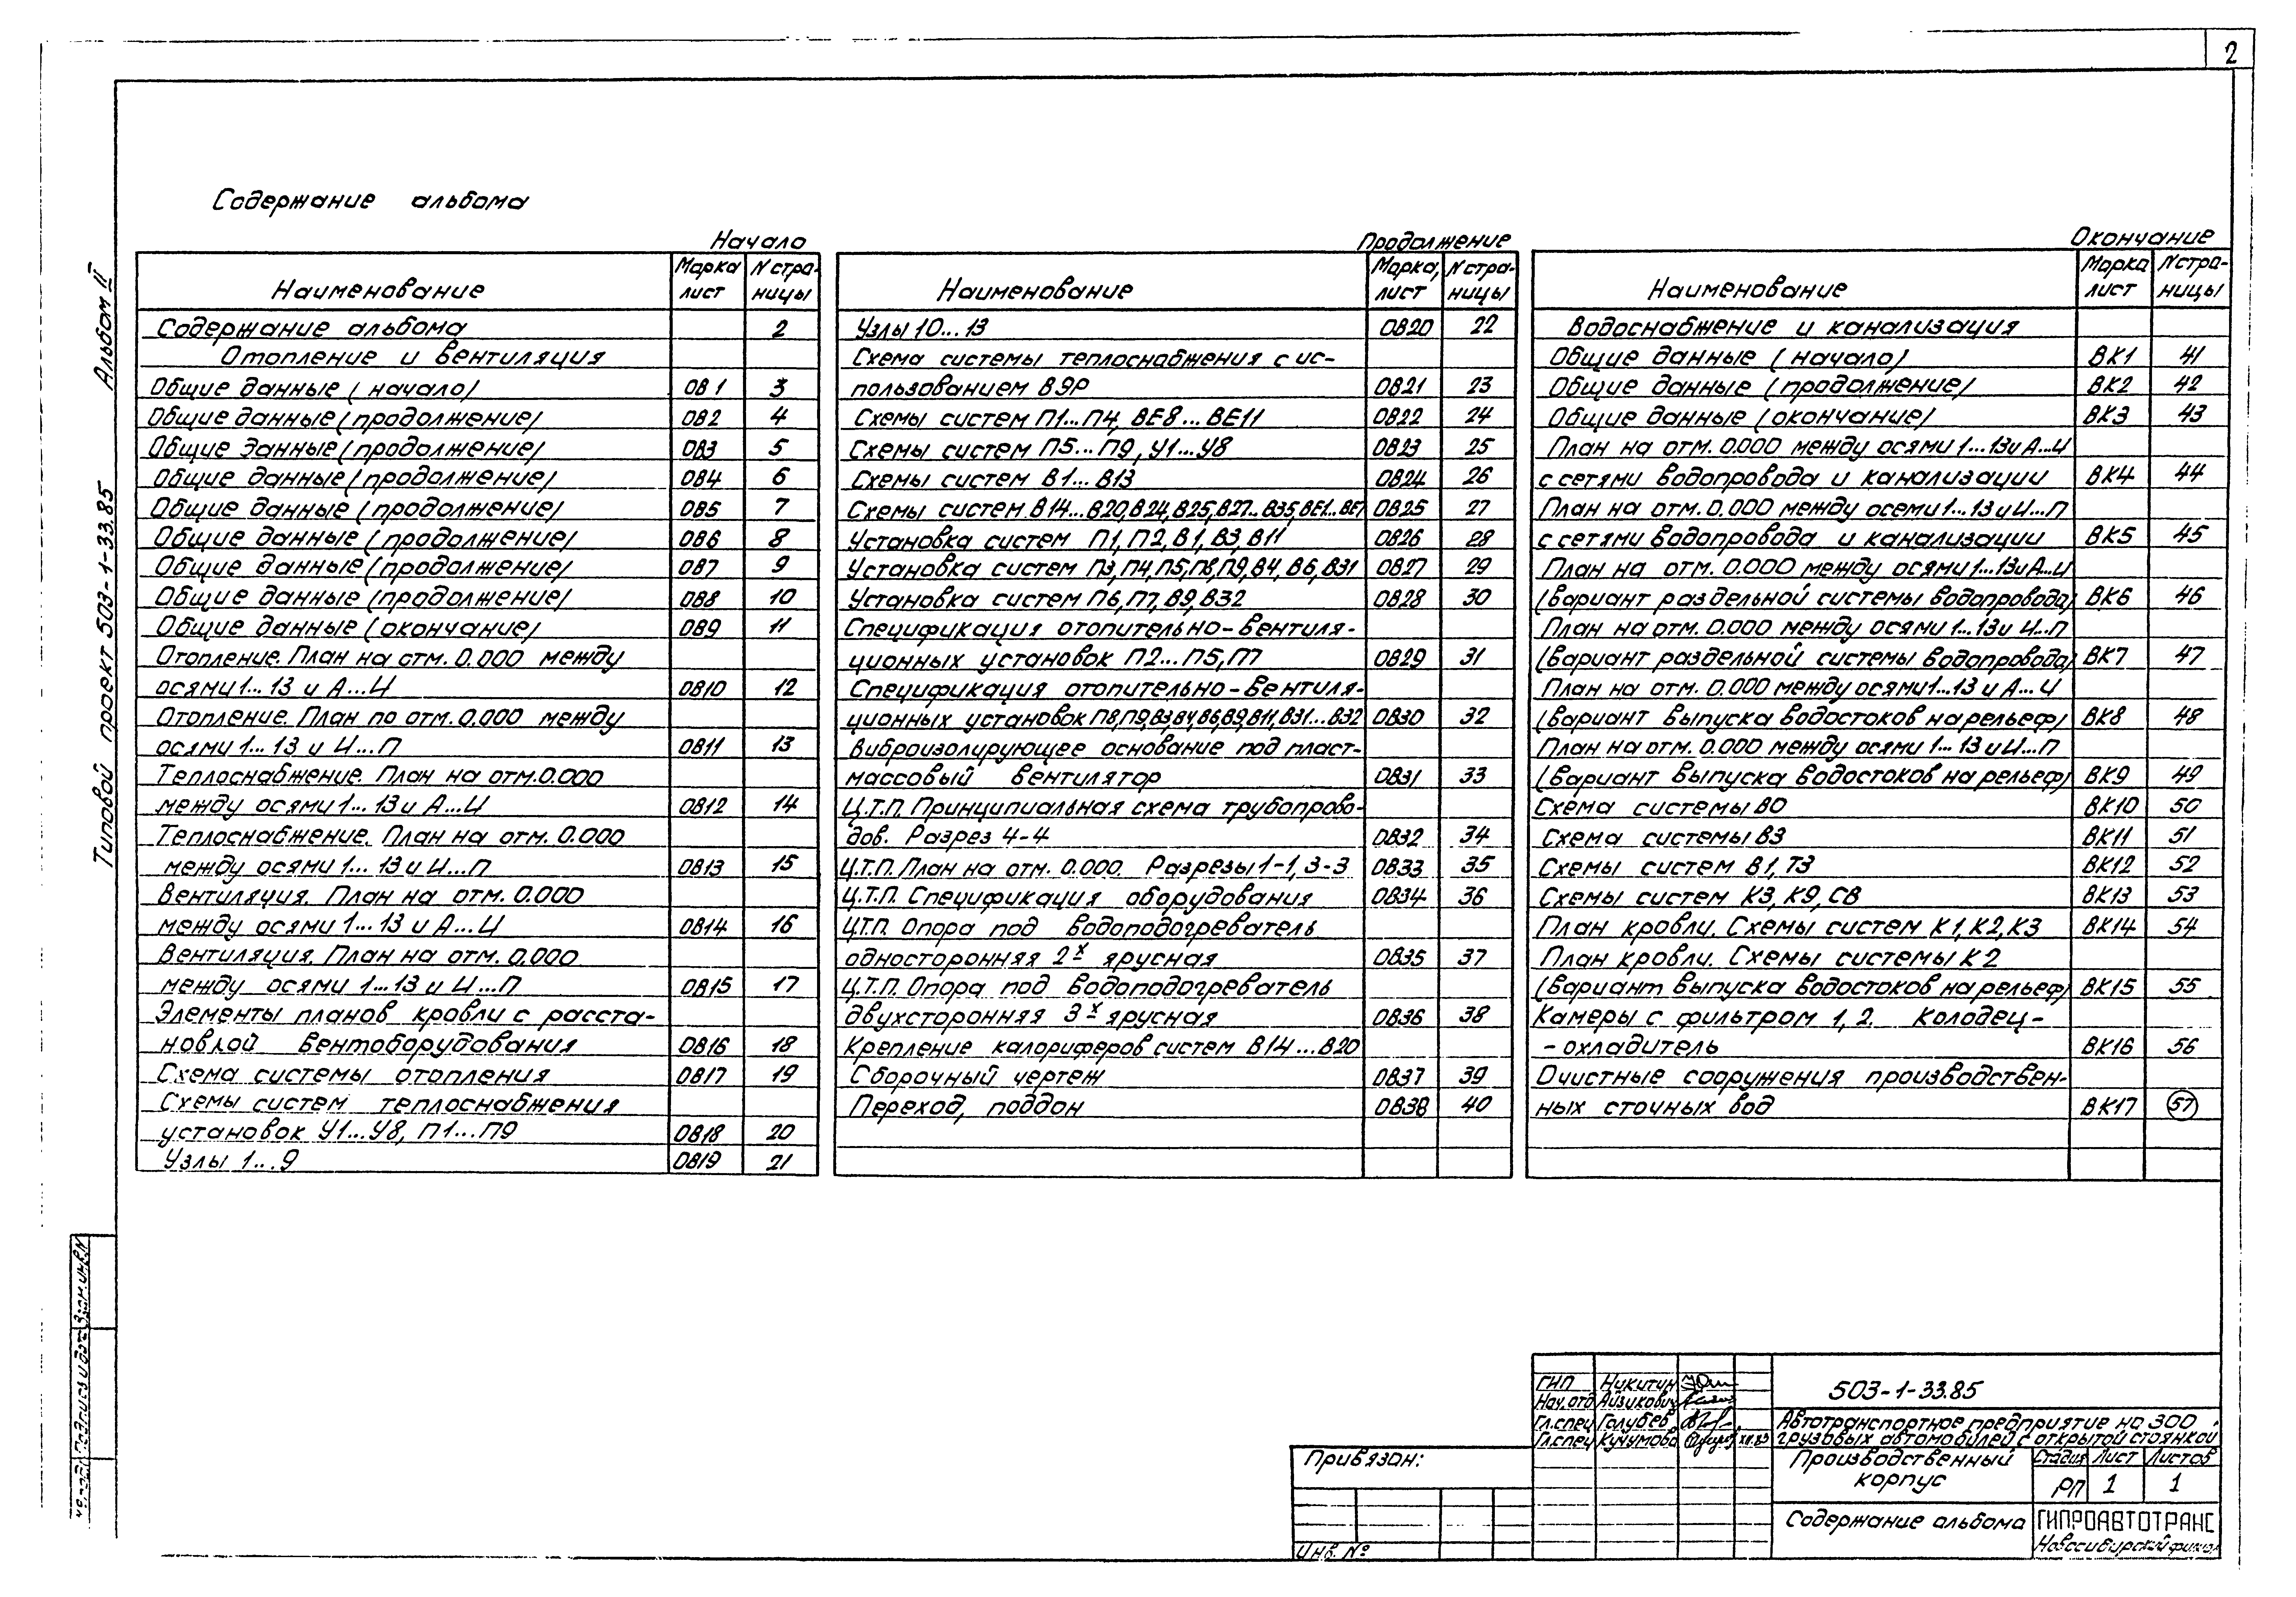 2
Содержание альбома
Типовой проект 503-1-33.85 Альбом II
Начало
Наименование Марка лист N страницы
Содержание альбома 2
Отопление и вентиляция
Общие данные (начало) ОВ1 3
Общие данные (продолжение) ОВ2 4
Общие данные (продолжение) ОВ3 5
Общие данные (продолжение) ОВ4 6
Общие данные (продолжение) ОВ5 7
Общие данные (продолжение) ОВ6 8
Общие данные (продолжение) ОВ7 9
Общие данные (продолжение) ОВ8 10
Общие данные (окончание) ОВ9 11
Отопление. План на отм. 0.000 между
осями 1...13 и А...И ОВ10 12
Отопление. План по отм. 0.000 между
осями 1...13 и И...П ОВ11 13
Теплоснабжение. План на отм. 0.000
между осями 1...13 и А...И ОВ12 14
Теплоснабжение. План на отм. 0.000
между осями 1...13 и И...П ОВ13 15
Вентиляция. План на отм. 0.000
между осями 1...13 и А...И ОВ14 16
Вентиляция. План на отм. 0.000
между осями 1...13 и И...П ОВ15 17
Элементы планов кровли с расста-
новкой вентоборудования ОВ16 18
Схема системы отопления ОВ17 19
Схемы систем теплоснабжения
установок У1...У8, П1...П9 ОВ18 20
Узлы 1...9 ОВ19 21
Продолжение
Наименование Марка, лист N страницы
Узлы 10...13 ОВ20 22
Схема системы теплоснабжения с ис-
пользованием ВЭР ОВ21 23
Схемы систем П1...П4, ВЕ8...ВЕ11 ОВ22 24
Схемы систем П5...П9, У1...У8 ОВ23 25
Схемы систем В1...В13 ОВ24 26
Схемы систем В14...В20, В24, В25, В27...В35, ВЕ1...ВЕ7 ОВ25 27
Установка систем П1, П2, В1, В3, В11 ОВ26 28
Установка систем П3, П4, П5, П8, П9, В4, В6, В31 ОВ27 29
Установка систем П6, П7, В9, В32 ОВ28 30
Спецификация отопительно-вентиля-
ционных установок П2...П5, П7 ОВ29 31
Спецификация отопительно-вентиля-
ционных установок П8, П9, В3, В4, В6, В9, В11, В31...В32 ОВ30 32
Виброизолирующее основание под пласт-
массовый вентилятор ОВ31 33
Ц.Т.П. Принципиальная схема трубопрово-
дов. Разрез 4-4 ОВ32 34
Ц.Т.П. План на отм. 0.000. Разрезы 1-1, 3-3 ОВ33 35
Ц.Т.П. Спецификация оборудования ОВ34 36
Ц.Т.П. Опора под водоподогреватель
односторонняя 2х ярусная ОВ35 37
Ц.Т.П. Опора под водоподогреватель
двухсторонняя 3х ярусная ОВ36 38
Крепление калориферов систем В14...В20
Сборочный чертеж ОВ37 39
Переход, поддон ОВ38 40
Окончание
Наименование Марка лист N страницы
Водоснабжение и канализация
Общие данные (начало) ВК1 41
Общие данные (продолжение) ВК2 42
Общие данные (окончание) ВК3 43
План на отм. 0.000 между осями 1...13 и А...И
с сетями водопровода и канализации ВК4 44
План на отм. 0.000 между осеми 1...13 и И...П
с сетями водопровода и канализации ВК5 45
План на отм. 0.000 между осями 1...13 и А...И
(вариант раздельной системы водопровода) ВК6 46
План на отм. 0.000 между осями 1...13 и И...П
(вариант раздельной системы водопровода) ВК7 47
План на отм. 0.000 между осями 1...13 и А...И
(вариант выпуска водостоков на рельеф) ВК8 48
План на отм. 0.000 между осями 1...13 и И...П
(вариант выпуска водостоков на рельеф) ВК9 49
Схема системы В0 ВК10 50
Схема системы В3 ВК11 51
Схемы систем В1, Т3 ВК12 52
Схемы систем К3, К9, С8 ВК13 53
План кровли. Схемы систем К1, К2, К3 ВК14 54
План кровли. Схемы системы К2
(вариант выпуска водостоков на рельеф) ВК15 55
Камеры с фильтром 1, 2. Колодец-
-охладитель ВК16 56
Очистные сооружения производствен-
ных сточных вод ВК17 57
Взам. инв. N
Подпись и дата
ГИП Никитин
Нач. отд Айзикович
Гл. спец Голубев
Гл. спец Кучумова
503-1-33.85
Автотранспортное предприятие на 300
грузовых автомобилей с открытой стоянкой
Привязан:
Производственный корпус
Стадия Лист Листов
РП 1 1
Содержание альбома
ГИПРОАВТОТРАНС
Новосибирский филиал
Инв. №